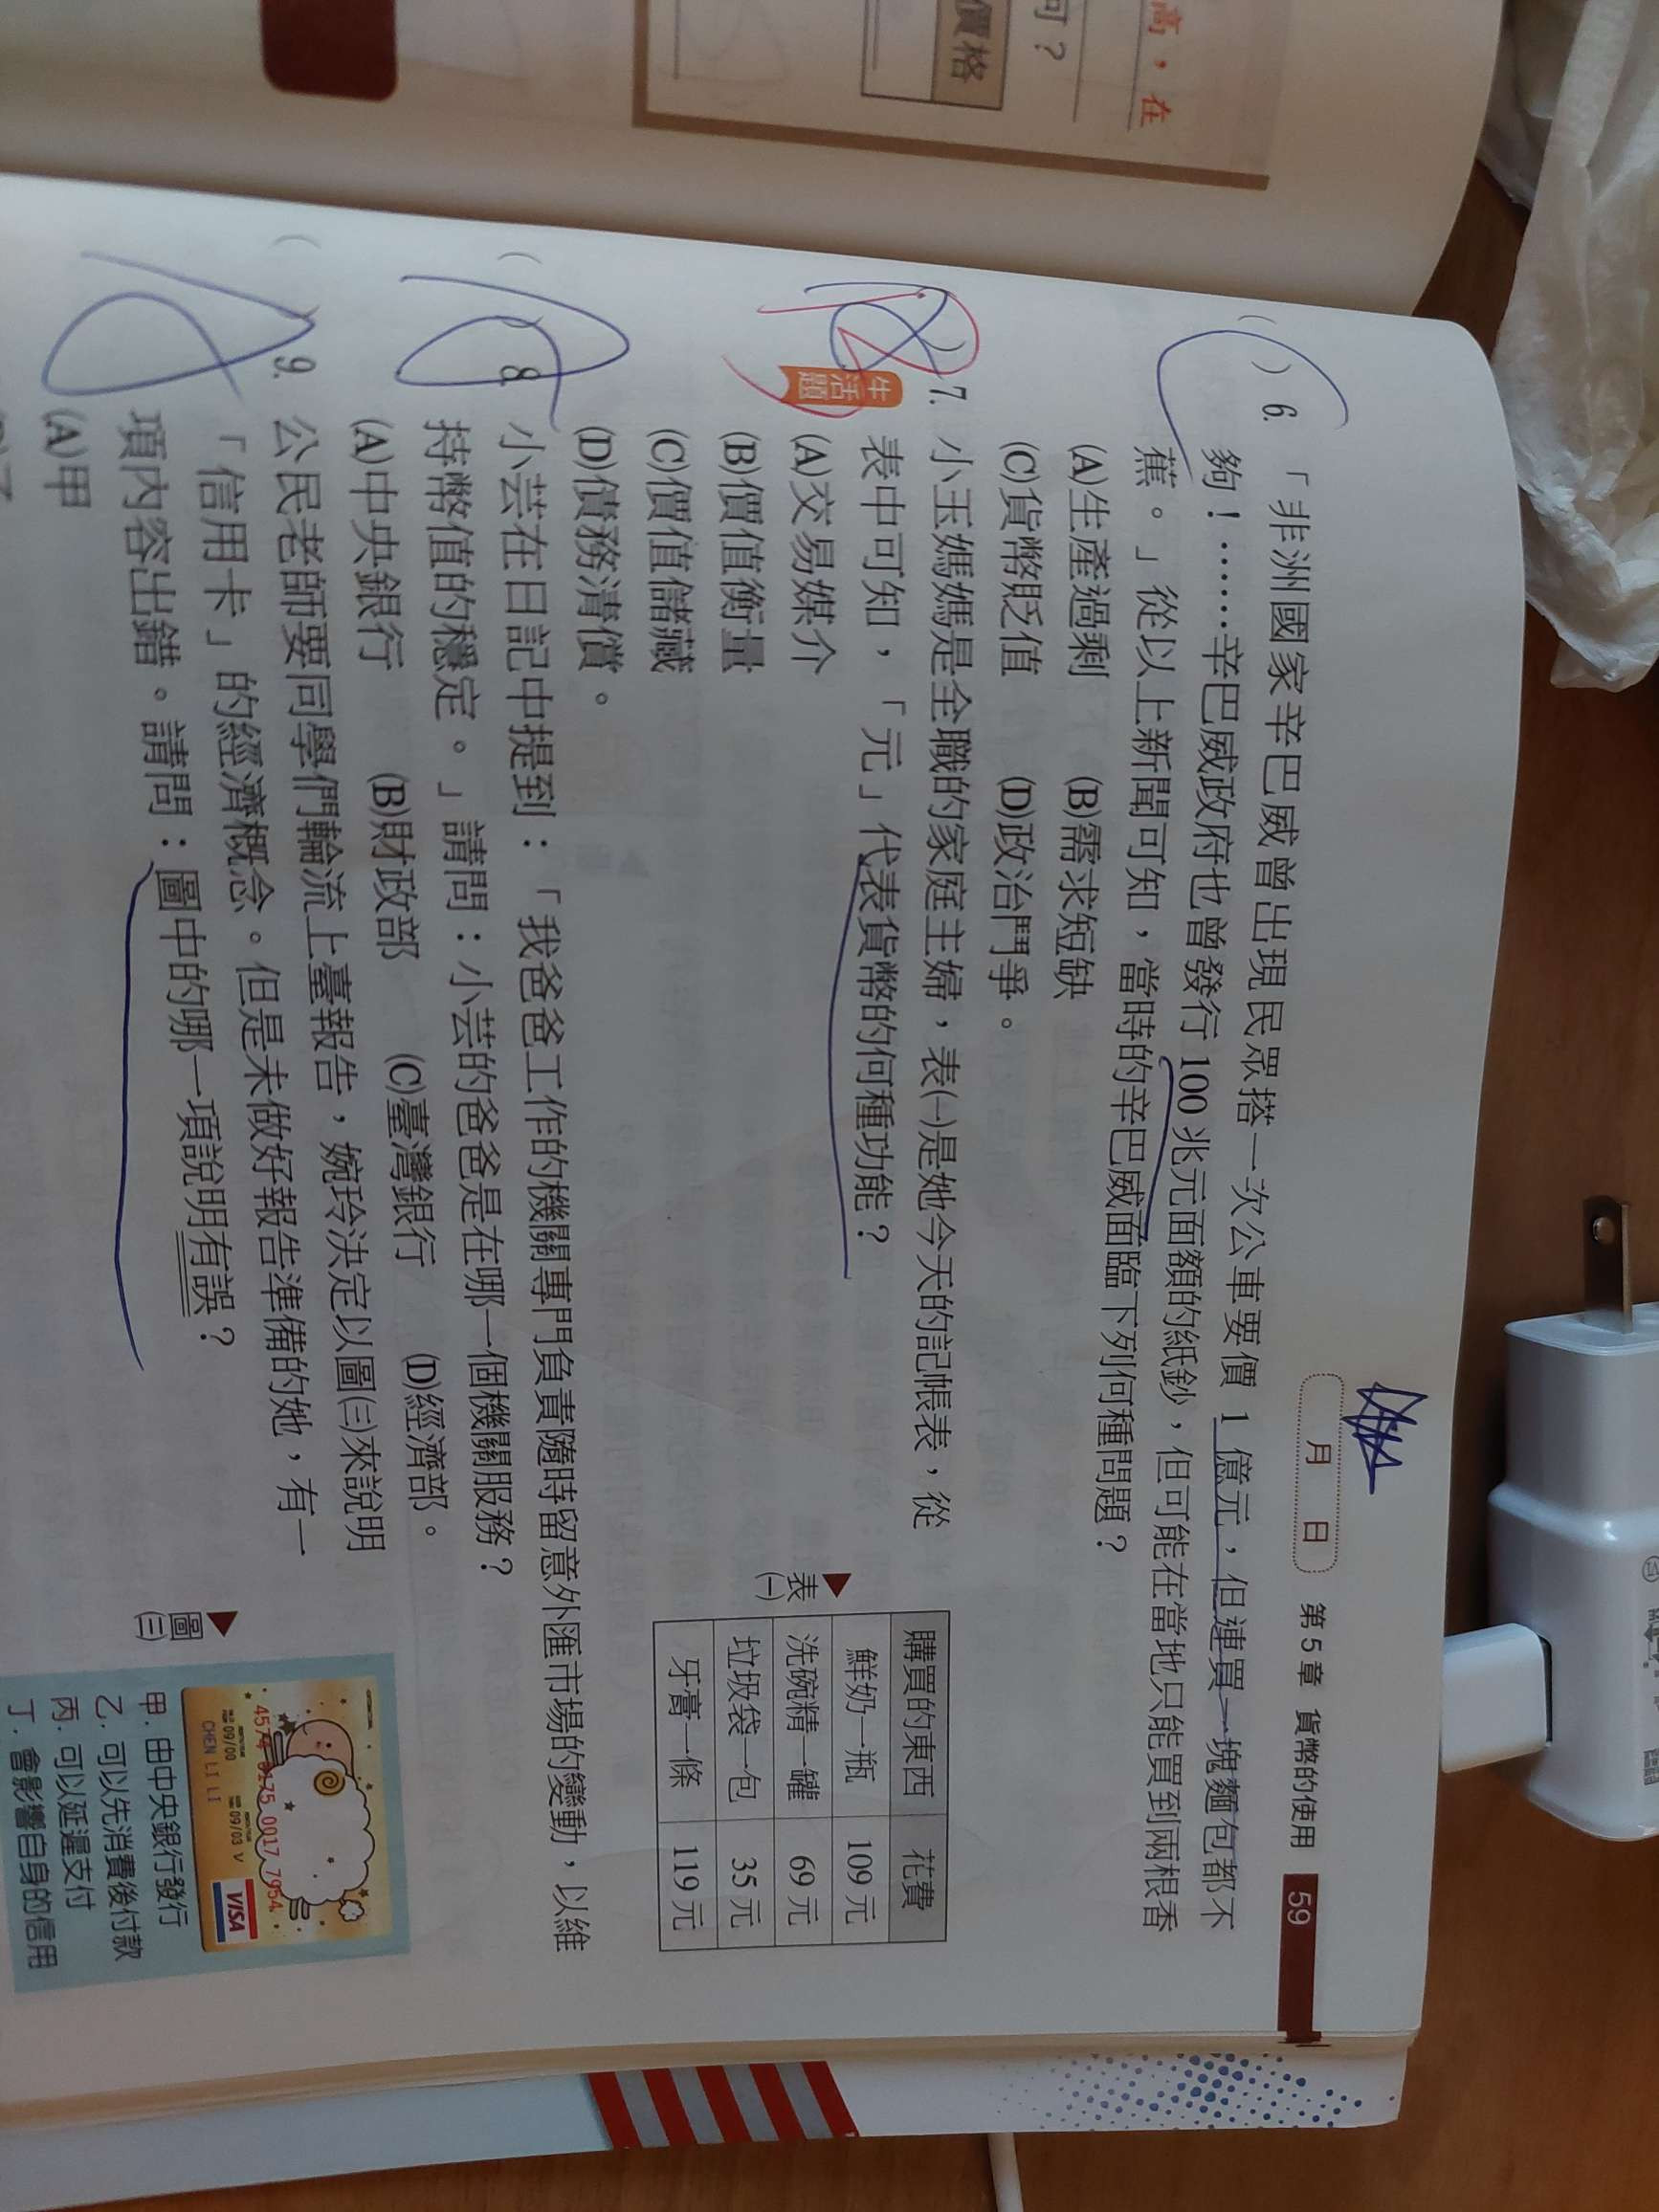 高，在
何？
價格
月 日 第 5 章 貨幣的使用 59
( ) 6. 「非洲國家辛巴威曾出現民眾搭一次公車要價 1 億元，但連買一塊麵包都不
夠！……辛巴威政府也曾發行 100 兆元面額的紙鈔，但可能在當地只能買到兩根香
蕉。」從以上新聞可知，當時的辛巴威面臨下列何種問題？
(A)生產過剩 (B)需求短缺
(C)貨幣貶值 (D)政治鬥爭。
7. 小玉媽媽是全職的家庭主婦，表(一)是她今天的記帳表，從
生活題
表中可知，「元」代表貨幣的何種功能？
(A)交易媒介
(B)價值衡量
(C)價值儲藏
(D)債務清償。
表(一)
購買的東西 花費
鮮奶一瓶 109 元
洗碗精一罐 69 元
垃圾袋一包 35 元
牙膏一條 119 元
( ) 8. 小芸在日記中提到：「我爸爸工作的機關專門負責隨時留意外匯市場的變動，以維
持幣值的穩定。」請問：小芸的爸爸是在哪一個機關服務？
(A)中央銀行 (B)財政部 (C)臺灣銀行 (D)經濟部。
( ) 9. 公民老師要同學們輪流上臺報告，婉玲決定以圖(三)來說明
「信用卡」的經濟概念。但是未做好報告準備的她，有一
項內容出錯。請問：圖中的哪一項說明有誤？
(A)甲
圖(三)
4574 9175 0017 7954
09/00 09/03 V
CHEN LI LI
VISA
甲．由中央銀行發行
乙．可以先消費後付款
丙．可以延遲支付
丁．會影響自身的信用